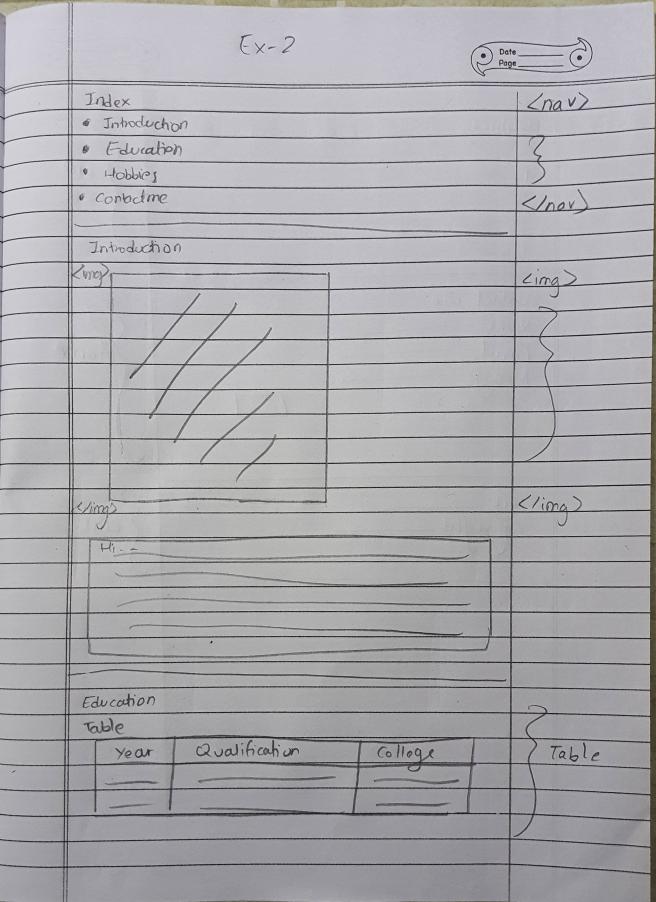 Ex-2
Date
Page
Index <nav>
• Introduction
• Education
• Hobbies
• Contactme </nav>
Introduction
<img> <img>
</img> </img>
Hi--
Education
Table
Year Qualification Colloge Table